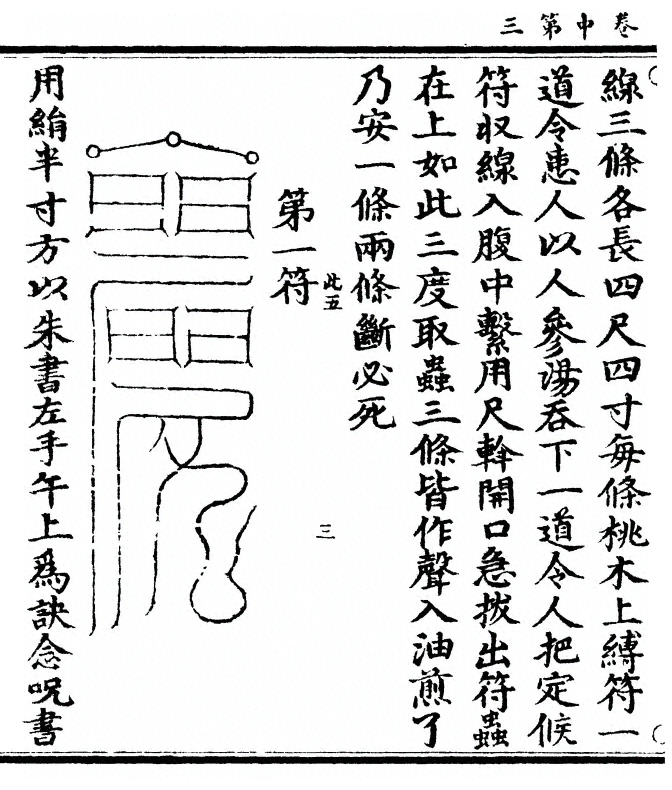 卷中第三
線三條各長四尺四寸每條桃木上縛符一
道令患人以人參湯吞下一道令人把定候
符收線入腹中繫用尺幹開口急拔出符蟲
在上如此三度取蟲三條皆作聲入油煎了
乃安一條兩條斷必死
第一符
此五
三
用絹半寸方以朱書左手午上為訣念呪書